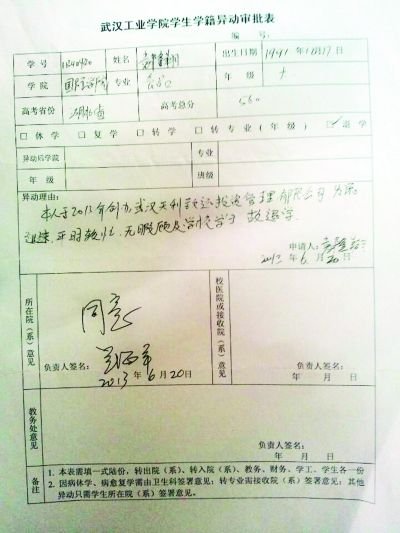 武汉工业学院学生学籍异动审批表
编 号:
学 号 姓名 出生日期 1991年12月17日
学 院 专业 年 级 大一
高考省份 湖北省 高考总分 560
□休学 □复学 □转学 □转专业(年级) ☑退学
异动后学院 专业
年 级 班级
异动理由:
本人于2013年创办武汉天利 投资管理有限公司 为
平时较忙,无暇顾及学校学习 故退学.
申请人:
2013年6月20日
所在院(系)意见
同意
负责人签名:
2013年6月20日
校医院或接收院(系)意见
负责人签名:
年 月 日
教务处意见
负责人签名:
年 月 日
备注
1. 本表需填一式陆份,转出院(系)、转入院(系)、教务、财务、学工、学生各一份
2. 因病休学、病愈复学需由卫生科签署意见;转专业需接收院(系)签署意见;其他
异动只需学生所在院(系)签署意见。